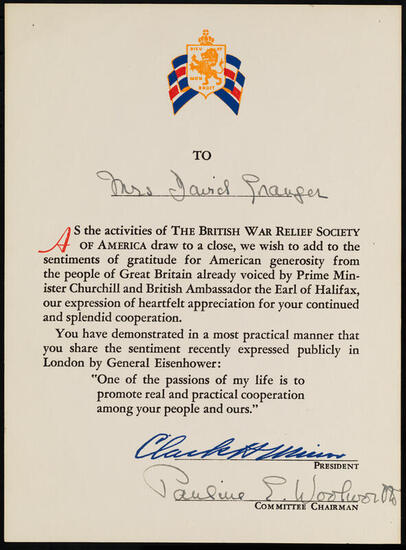 DIEU ET
MON
DROIT
TO
Mrs David Granger
AS the activities of THE BRITISH WAR RELIEF SOCIETY
OF AMERICA draw to a close, we wish to add to the
sentiments of gratitude for American generosity from
the people of Great Britain already voiced by Prime Min-
ister Churchill and British Ambassador the Earl of Halifax,
our expression of heartfelt appreciation for your continued
and splendid cooperation.
You have demonstrated in a most practical manner that
you share the sentiment recently expressed publicly in
London by General Eisenhower:
"One of the passions of my life is to
promote real and practical cooperation
among your people and ours."
Clark H Minor
PRESIDENT
Pauline E. Woolworth
COMMITTEE CHAIRMAN